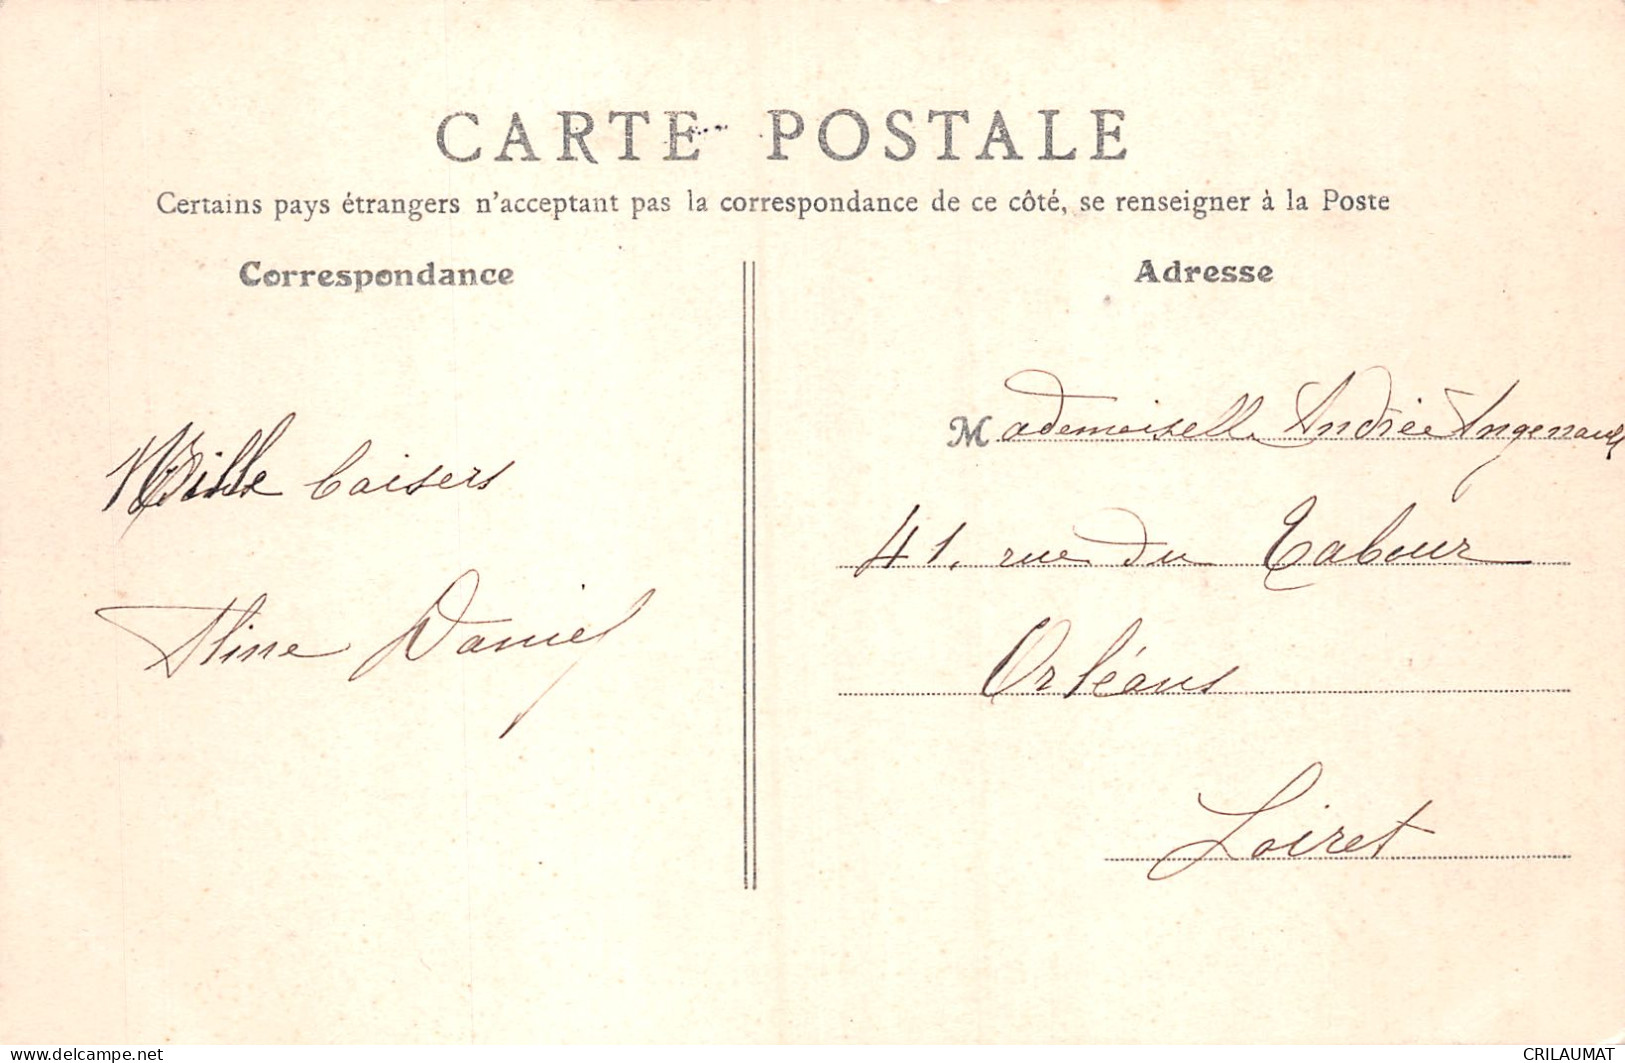 CARTE POSTALE
Certains pays étrangers n'acceptant pas la correspondance de ce côté, se renseigner à la Poste
Correspondance
Mille baisers
Aline Daniel
Adresse
Mademoiselle Andrée Angenault
41, rue du Tabour
Orléans
Loiret
www.delcampe.net
CRILAUMAT